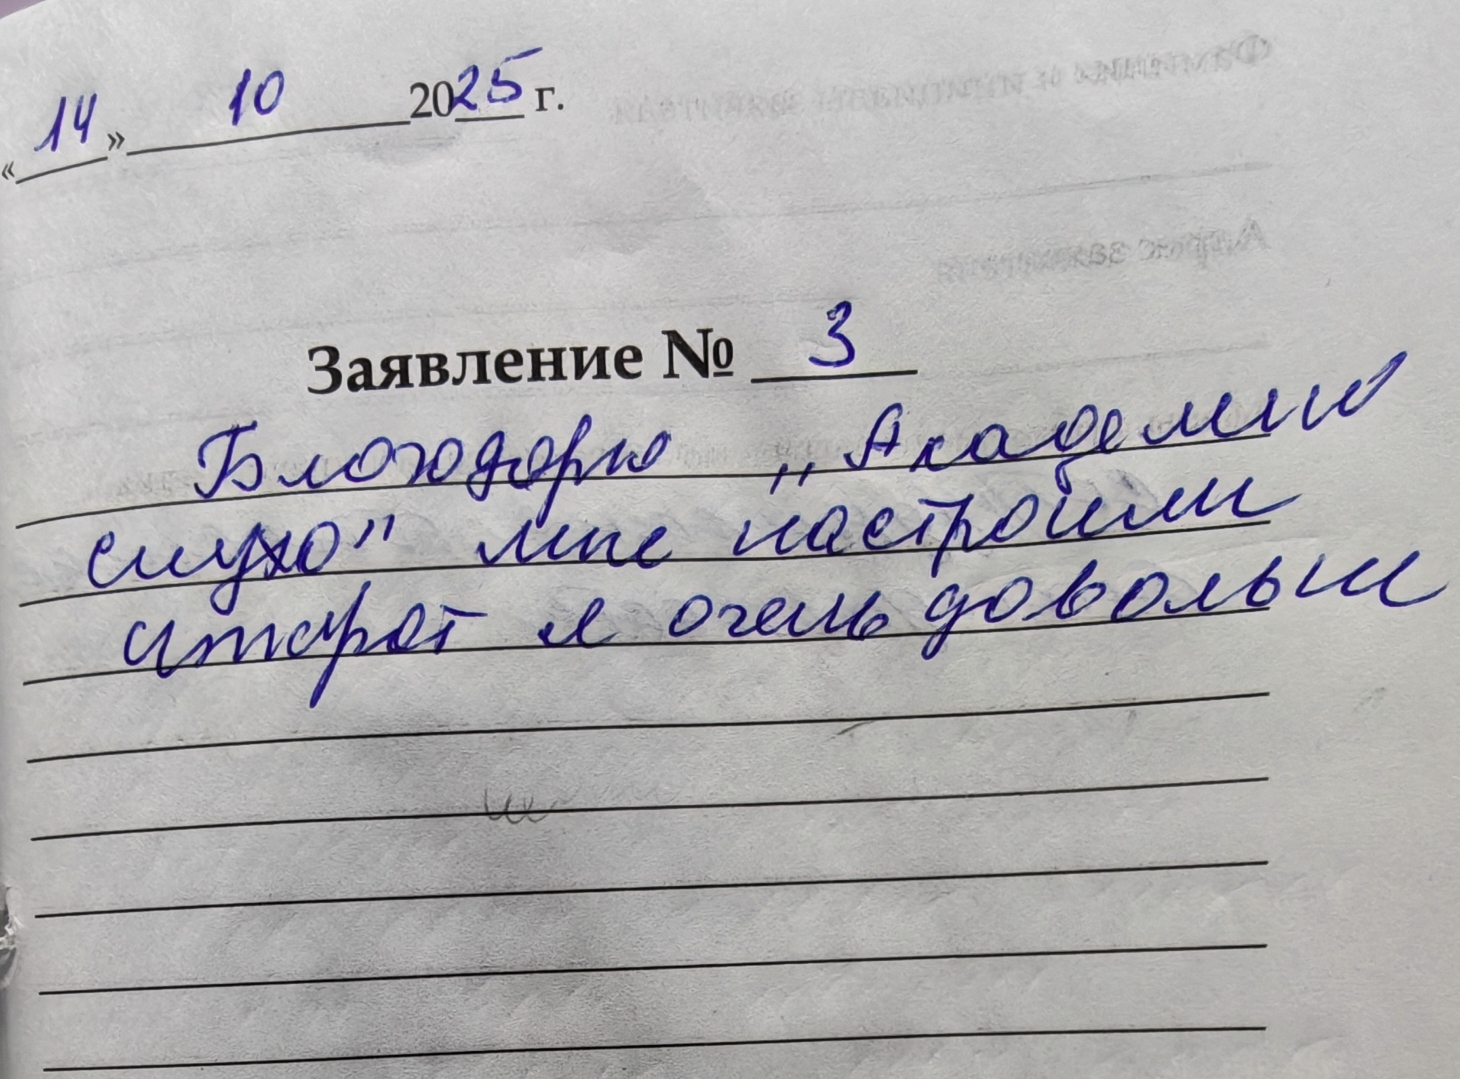 «14» 10 2025 г.
Заявление № 3
Благодарю „Академию
слуха" мне настроили
аппарат я очень довольны